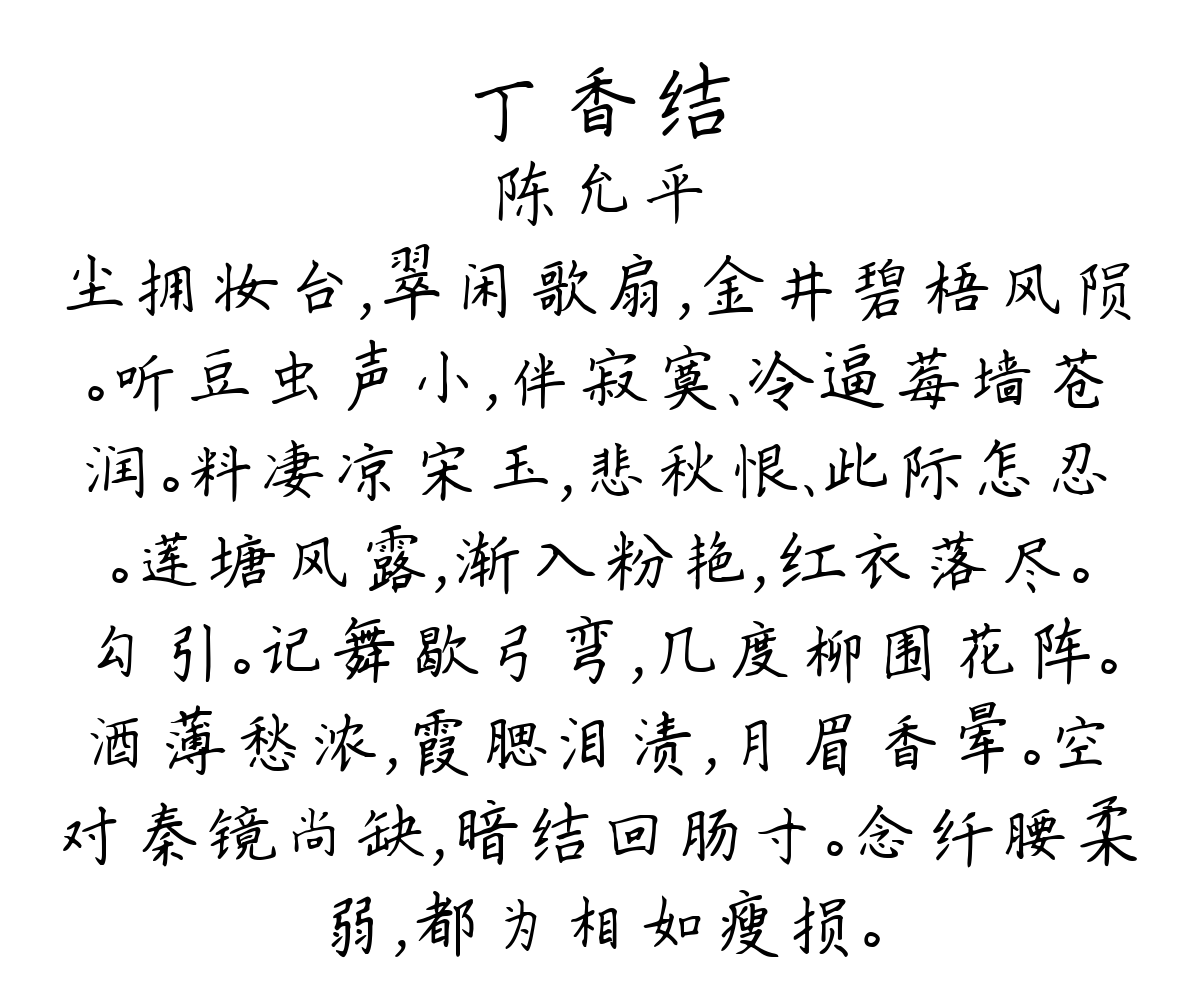 丁香结
陈允平
尘拥妆台,翠闲歌扇,金井碧梧风陨
。听豆虫声小,伴寂寞、冷逼莓墙苍
润。料凄凉宋玉,悲秋恨、此际怎忍
。莲塘风露,渐入粉艳,红衣落尽。
勾引。记舞歇弓弯,几度柳围花阵。
酒薄愁浓,霞腮泪渍,月眉香晕。空
对秦镜尚缺,暗结回肠寸。念纤腰柔
弱,都为相如瘦损。